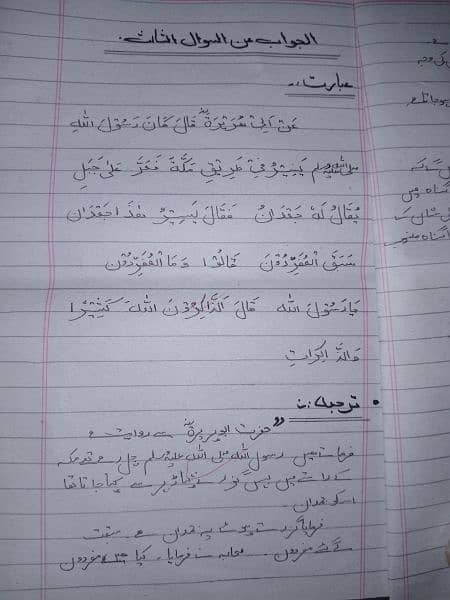 الجواب عن السوال الثالث
عبارت:۔
عَنْ اَبِیْ هُرَيْرَةَؓ قَالَ كَانَ رَسُوْلَ اللّٰهِ
صلى الله عليه وسلم يَسِيْرُ فِيْ طَرِيْقِ مَكَّةَ فَمَرَّ عَلیٰ جَبَلٍ
يُقَالُ لَهٗ جُمْدَانُ فَقَالَ سِيْرُوْا هٰذَا جُمْدَانُ
سَبَقَ الْمُفَرِّدُوْنَ قَالُوْا وَمَا الْمُفَرِّدُوْنَ
يَا رَسُوْلَ اللّٰه قَالَ اَلذَّاكِرُوْنَ اللّٰهَ كَثِيْرًا
وَالذَّاكِرَاتِ
ترجمہ:۔
حضرت ابوہریرہؓ سے روایت ہے
فرماتے ہیں رسول اللہ صلی اللہ علیہ وسلم چل رہے تھے مکہ
کے راستے میں پس گزرے پہاڑ پر سے کہا جاتا تھا
اسکو جمدان۔
فرمایا گزرتے یہ جمدان ہے۔ سبقت
لے گئے مفردون۔ صحابہ نے فرمایا۔ کیا ہے مفردون